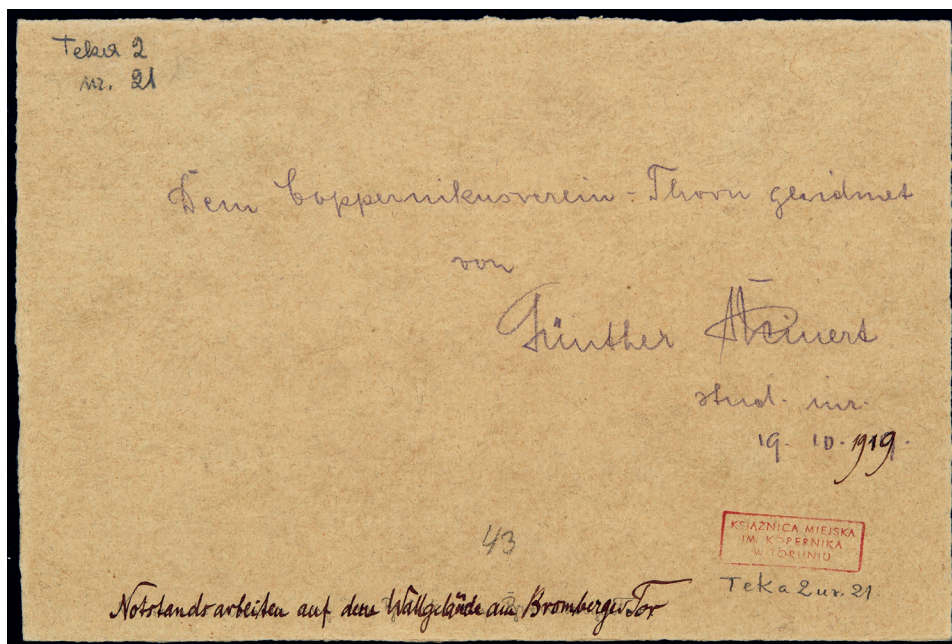 Teka 2
nr. 21
Dem Coppernikusverein-Thorn gewidmet
von
Günther
stud. iur.
19. 10. 1919.
43
KSIĄŻNICA MIEJSKA
IM. KOPERNIKA
W TORUNIU
Teka 2 nr. 21
Notstandsarbeiten auf dem Wallgelände am Bromberger Tor